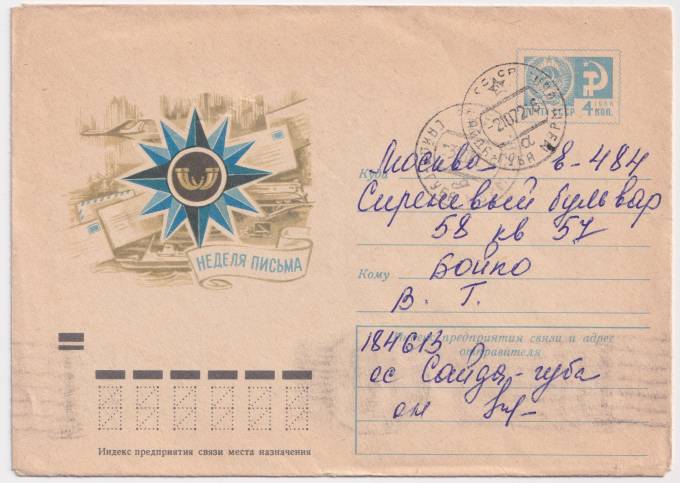 ПОЧТА СССР
1966
4 КОП.
СССР
21072
САЙДА-ГУБА МУРМ
Москва Е-484
Куда
Сиреневый бульвар
58 кв 57
Кому
Бойко
В. Т.
НЕДЕЛЯ ПИСЬМА
Индекс предприятия связи и адрес
отправителя
184613
ос Сайда-губа
Индекс предприятия связи места назначения